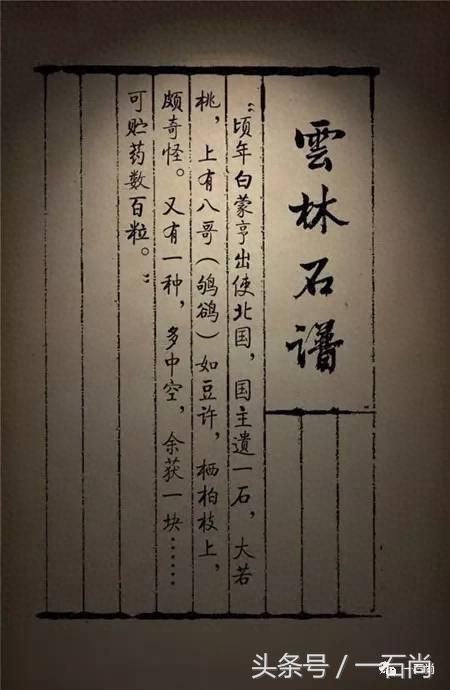 雲林石譜
“頃年白蒙亨出使北国，国主遺一石，大若
桃，上有八哥（鸲鹆）如豆许，栖柏枝上，
颇奇怪。又有一种，多中空，余获一块……
可贮药数百粒。”
一石尚
头条号／一石尚